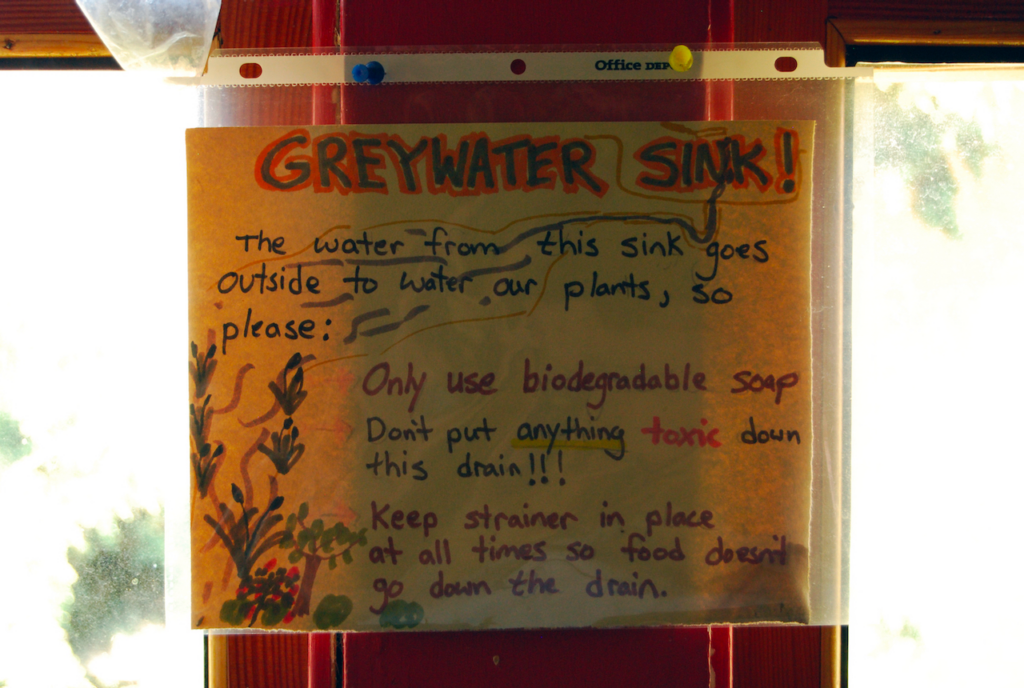 Office DEP
GREYWATER SINK!
The water from this sink goes
outside to water our plants, so
please:
Only use biodegradable soap
Don't put anything toxic down
this drain!!!
Keep strainer in place
at all times so food doesn't
go down the drain.